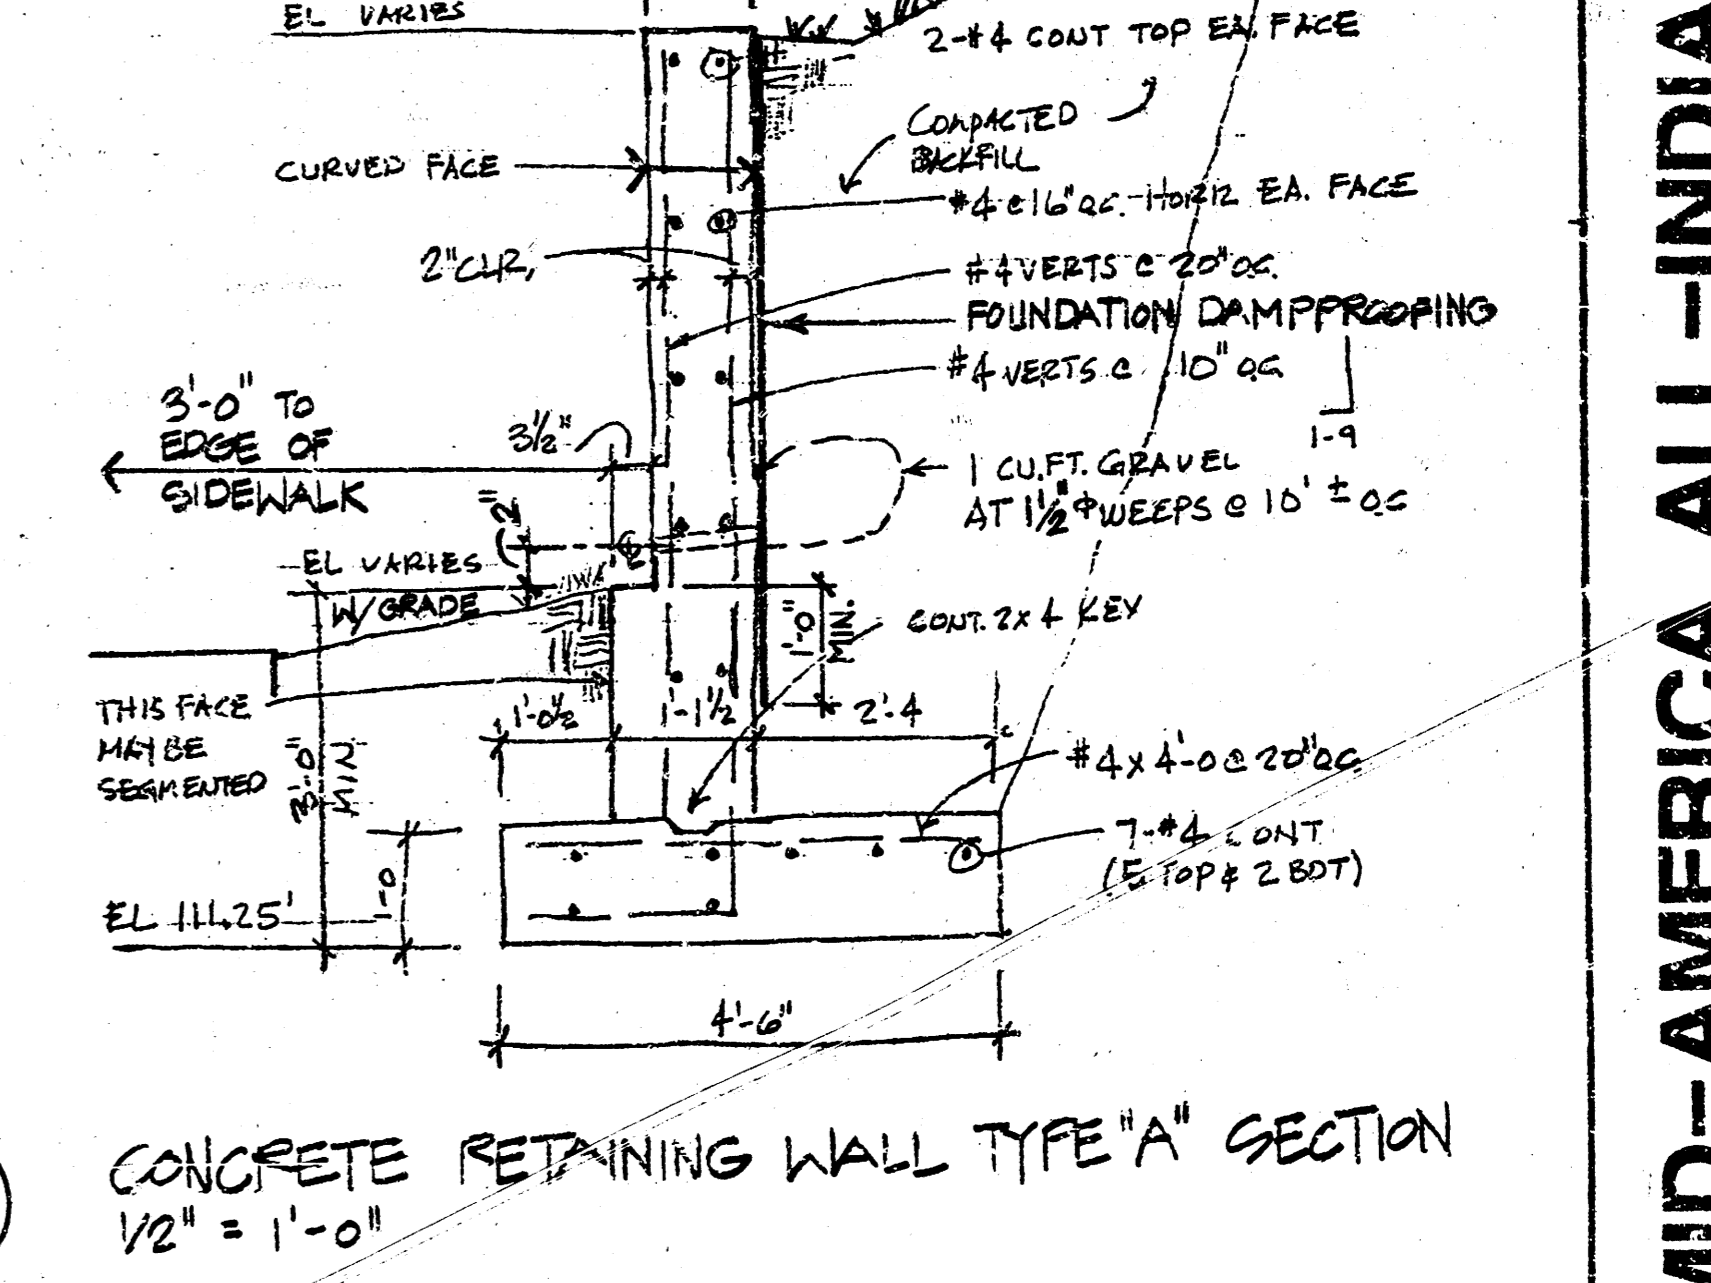 EL VARIES
2-#4 CONT TOP EA. FACE
COMPACTED
BACKFILL
CURVED FACE
#4 @ 16" O.C. HORIZ EA. FACE
2" CLR.
#4 VERTS @ 20" O.C.
FOUNDATION DAMPPROOFING
#4 VERTS @ 10" O.C.
1-9
3'-0" TO
EDGE OF
SIDEWALK
3½"
1 CU.FT. GRAVEL
AT 1½" Φ WEEPS @ 10' ± O.C
2"
EL VARIES
W/ GRADE
1'-0"
MIN.
CONT. 2X4 KEY
THIS FACE
MAY BE
SEGMENTED
1'-0½
1'-1½
2'-4
3'-0"
MIN
#4 X 4'-0 @ 20" O.C.
7-#4 CONT
(5 TOP & 2 BOT)
1-0
EL 111.25'
4'-6"
CONCRETE RETAINING WALL TYPE "A" SECTION
1/2" = 1'-0"
MID-AMERICA ALL-INDIA